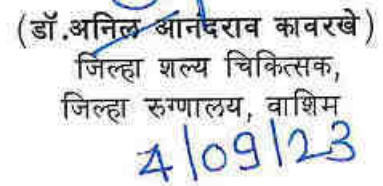 (डॉ.अनिल आनंदराव कावरखे)
जिल्हा शल्य चिकित्सक,
जिल्हा रुग्णालय, वाशिम
4/09/23